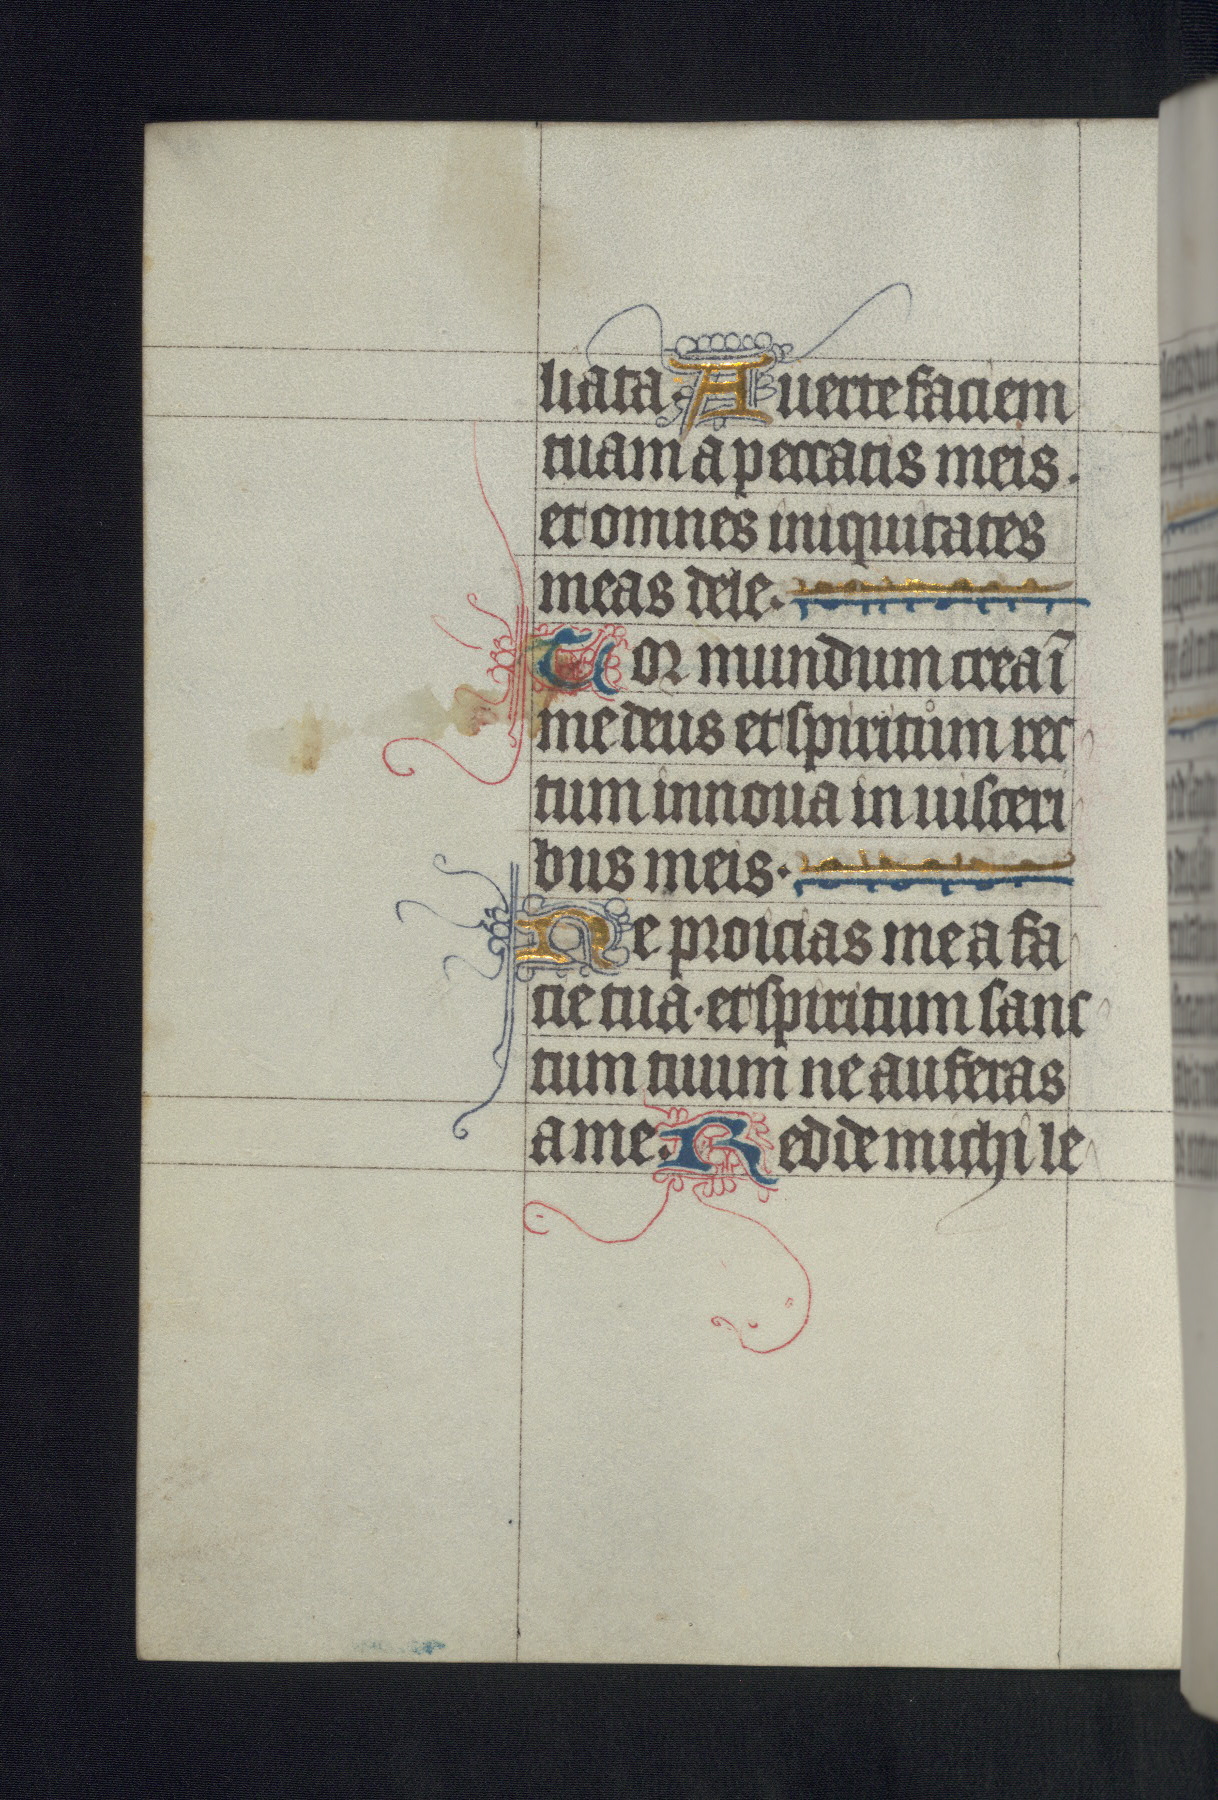 liata. Auerte faciem
tuam a peccatis meis.
et omnes iniquitates
meas dele.
Cor mundum crea ī
me deus et spiritum rec
tum innoua in uisceri
bus meis.
Ne proicias me a fa
cie tua. et spiritum sanc
tum tuum ne auferas
a me. Redde michi le